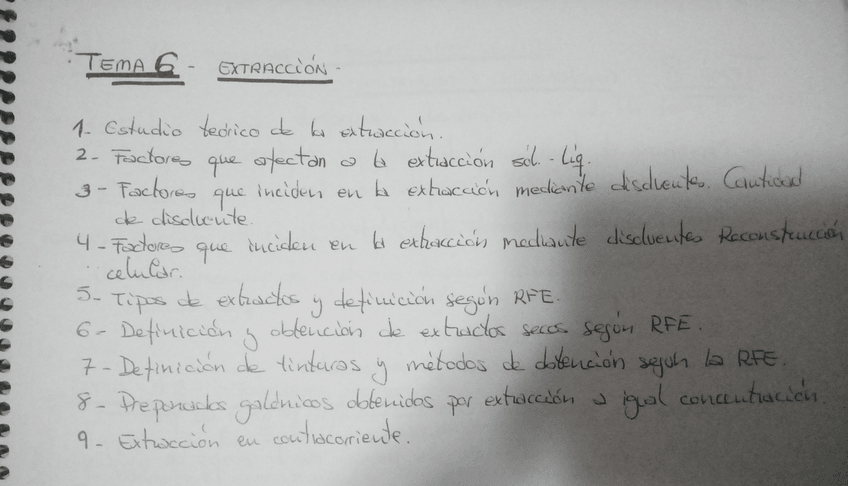 TEMA 6 - EXTRACCIÓN -
1- Estudio teórico de la extracción.
2- Factores que afectan a la extracción sól.-líq.
3- Factores que inciden en la extracción mediante disolventes. Cantidad
de disolvente.
4- Factores que inciden en la extracción mediante disolventes Reconstrucción
celular.
5- Tipos de extractos y definición según RFE.
6- Definición y obtención de extractos secos según RFE.
7- Definición de tinturas y métodos de obtención según la RFE.
8- Preparados galénicos obtenidos por extracción a igual concentración.
9- Extracción en contracorriente.